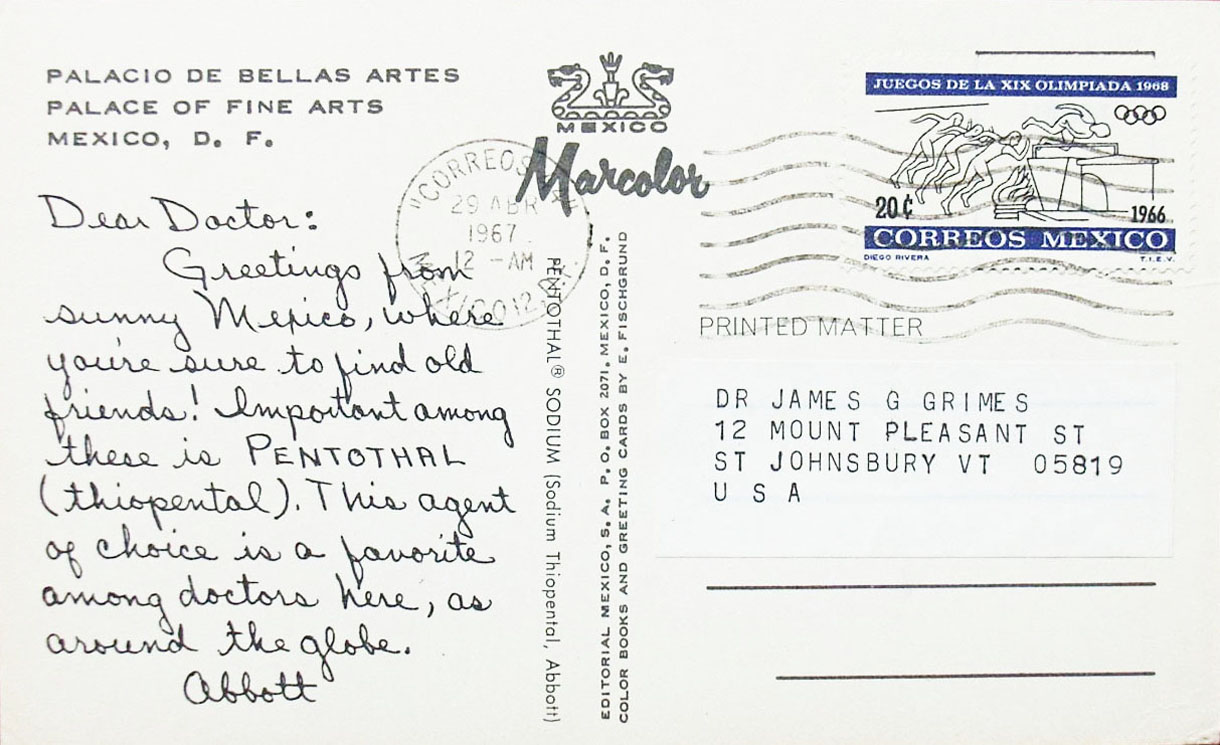 PALACIO DE BELLAS ARTES
PALACE OF FINE ARTS
MEXICO, D. F.
Dear Doctor:
Greetings from
sunny Mexico, where
you're sure to find old
friends! Important among
these is PENTOTHAL
(thiopental). This agent
of choice is a favorite
among doctors here, as
around the globe.
Abbott
MEXICO
Marcolor
"CORREOS
29 ABR
1967
12 -AM
MEXICO 12
PENTOTHAL® SODIUM (Sodium Thiopental, Abbott)
EDITORIAL MEXICO, S. A. P. O. BOX 2071, MEXICO, D. F.
COLOR BOOKS AND GREETING CARDS BY E. FISCHGRUND
JUEGOS DE LA XIX OLIMPIADA 1968
20 ¢
1966
CORREOS MEXICO
DIEGO RIVERA
T.I.E.V.
PRINTED MATTER
DR JAMES G GRIMES
12 MOUNT PLEASANT ST
ST JOHNSBURY VT 05819
U S A